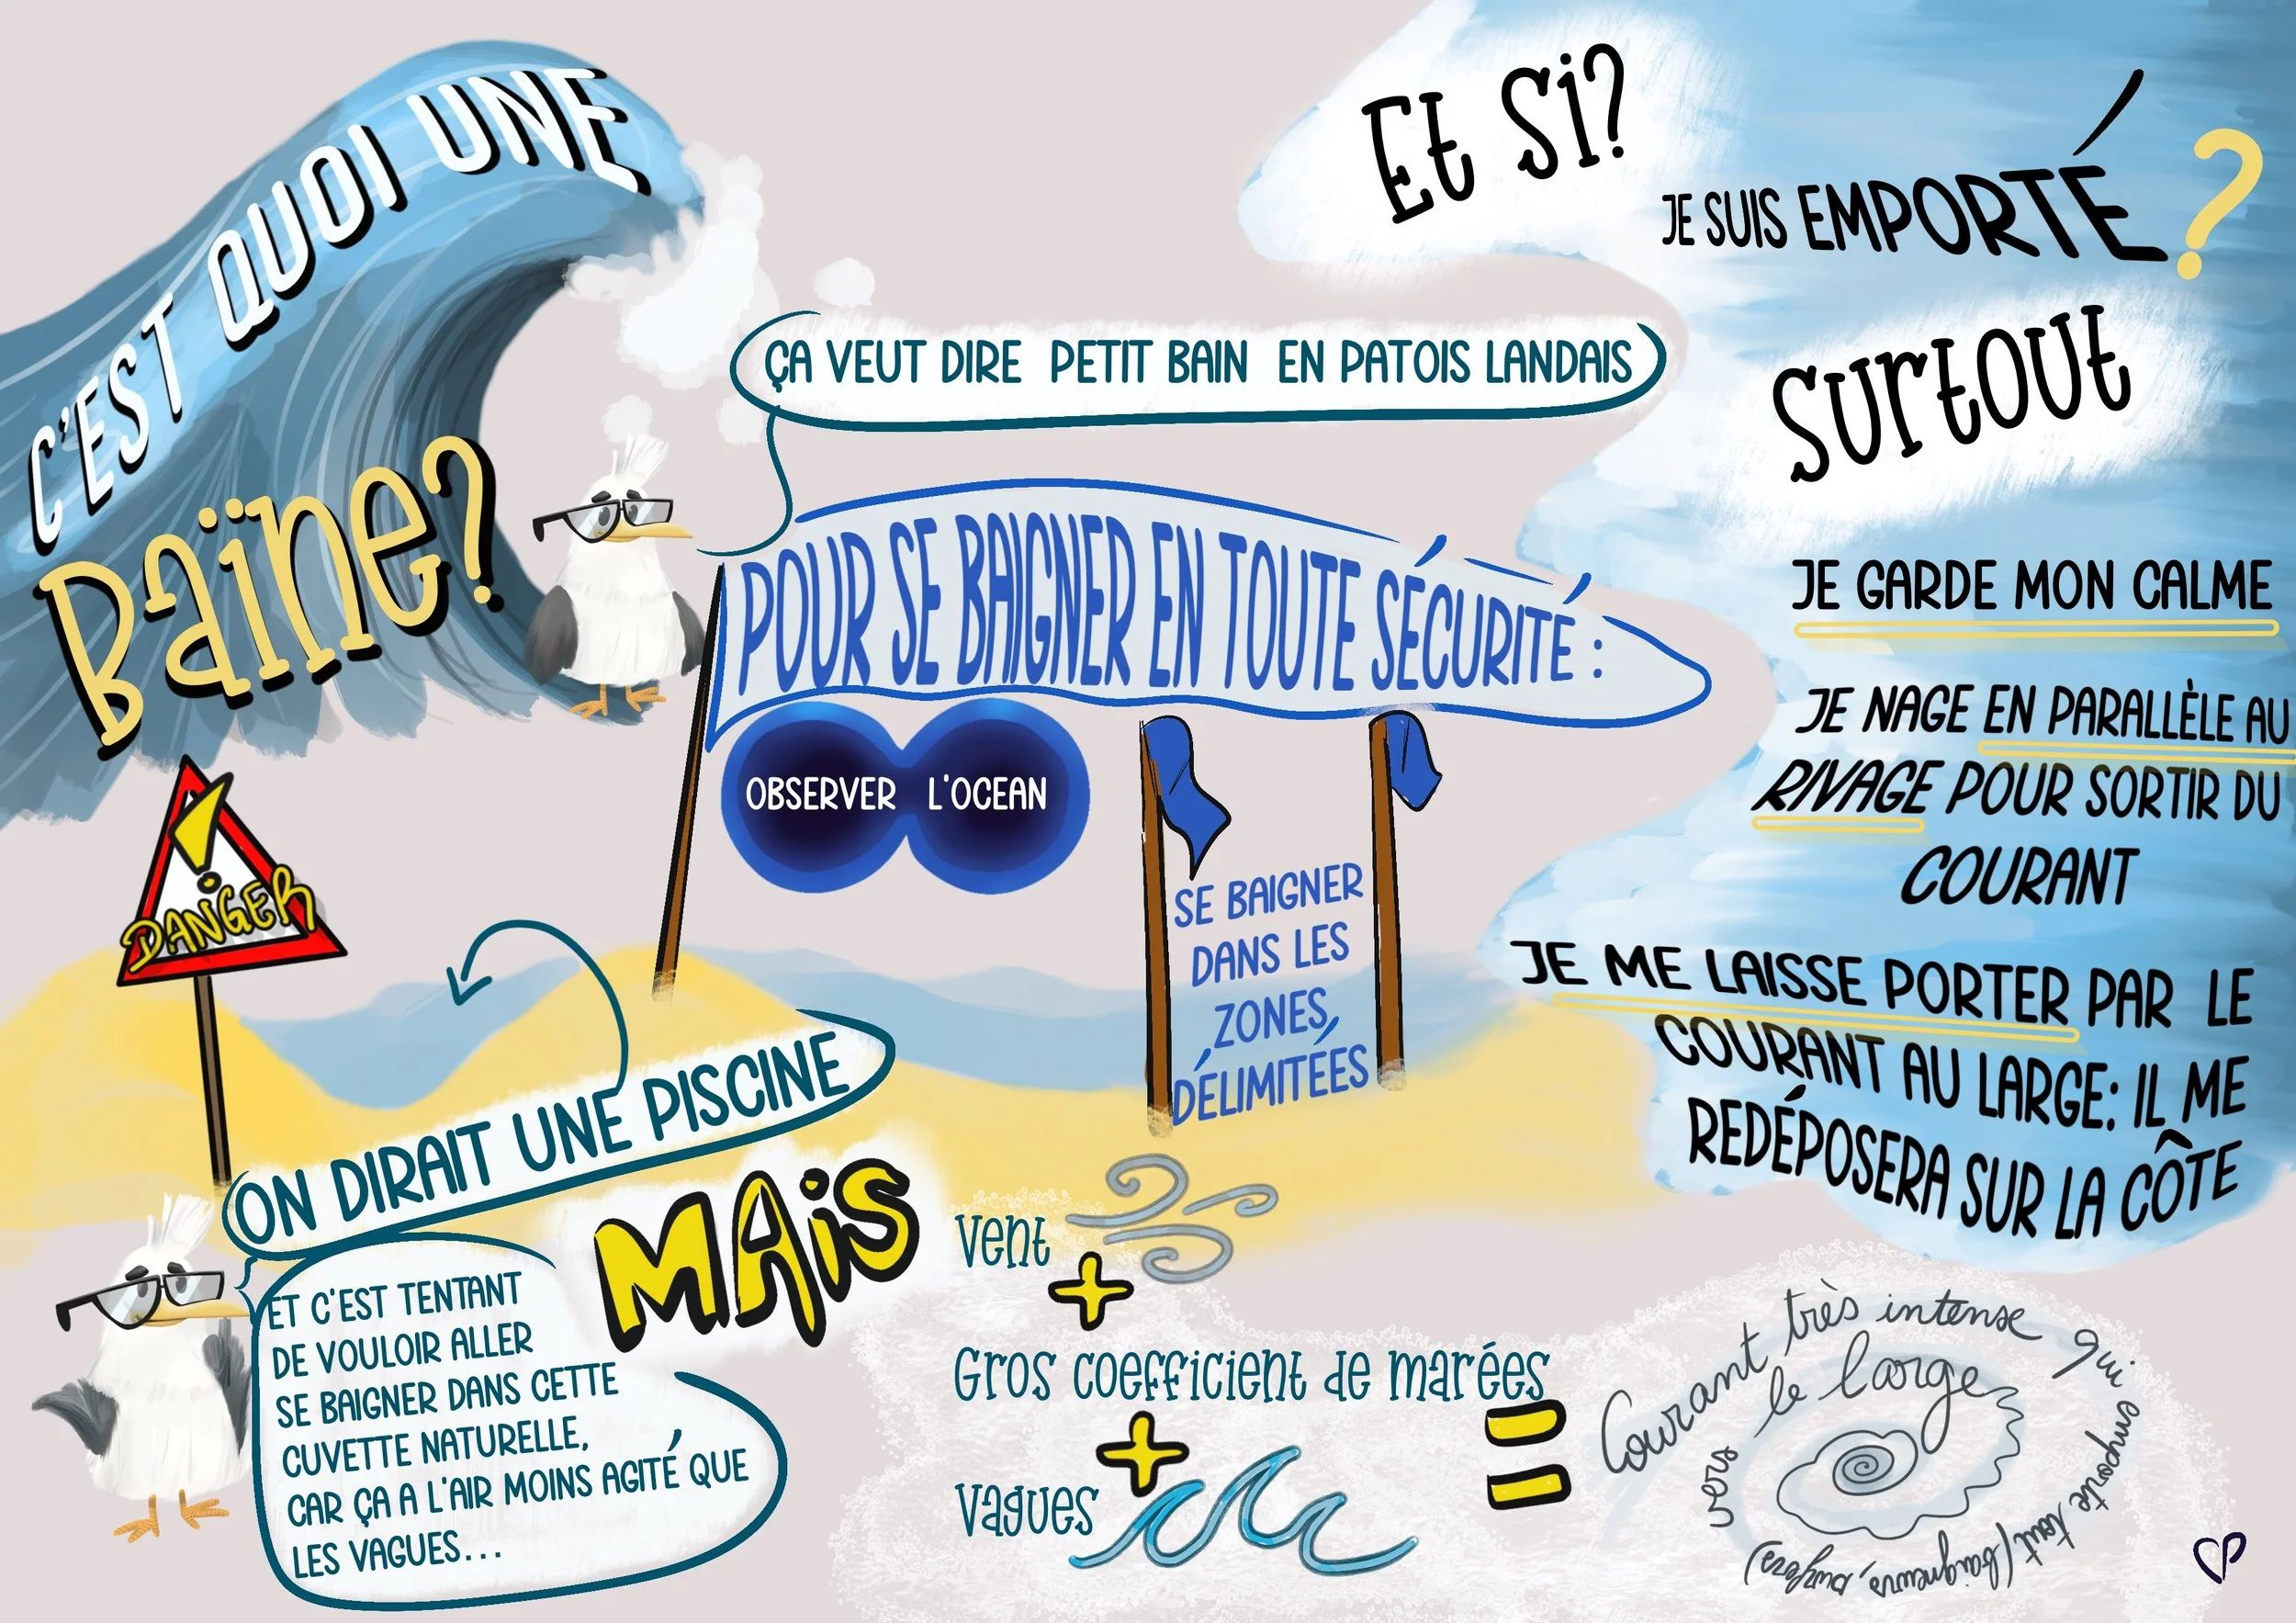 C'EST QUOI UNE
Baïne?
ÇA VEUT DIRE PETIT BAIN EN PATOIS LANDAIS
POUR SE BAIGNER EN TOUTE SÉCURITÉ :
OBSERVER L'OCEAN
SE BAIGNER
DANS LES
ZONES
DÉLIMITÉES
DANGER
ON DIRAIT UNE PISCINE
ET C'EST TENTANT
DE VOULOIR ALLER
SE BAIGNER DANS CETTE
CUVETTE NATURELLE,
CAR ÇA A L'AIR MOINS AGITÉ QUE
LES VAGUES...
MAIS
Vent
+
Gros coefficient de marées
+
Vagues
=
Courant très intense qui emporte tout (baigneurs, surfers)
vers le large
Et si?
JE SUIS EMPORTÉ ?
Surtout
JE GARDE MON CALME
JE NAGE EN PARALLÈLE AU
RIVAGE POUR SORTIR DU
COURANT
JE ME LAISSE PORTER PAR LE
COURANT AU LARGE: IL ME
REDÉPOSERA SUR LA CÔTE